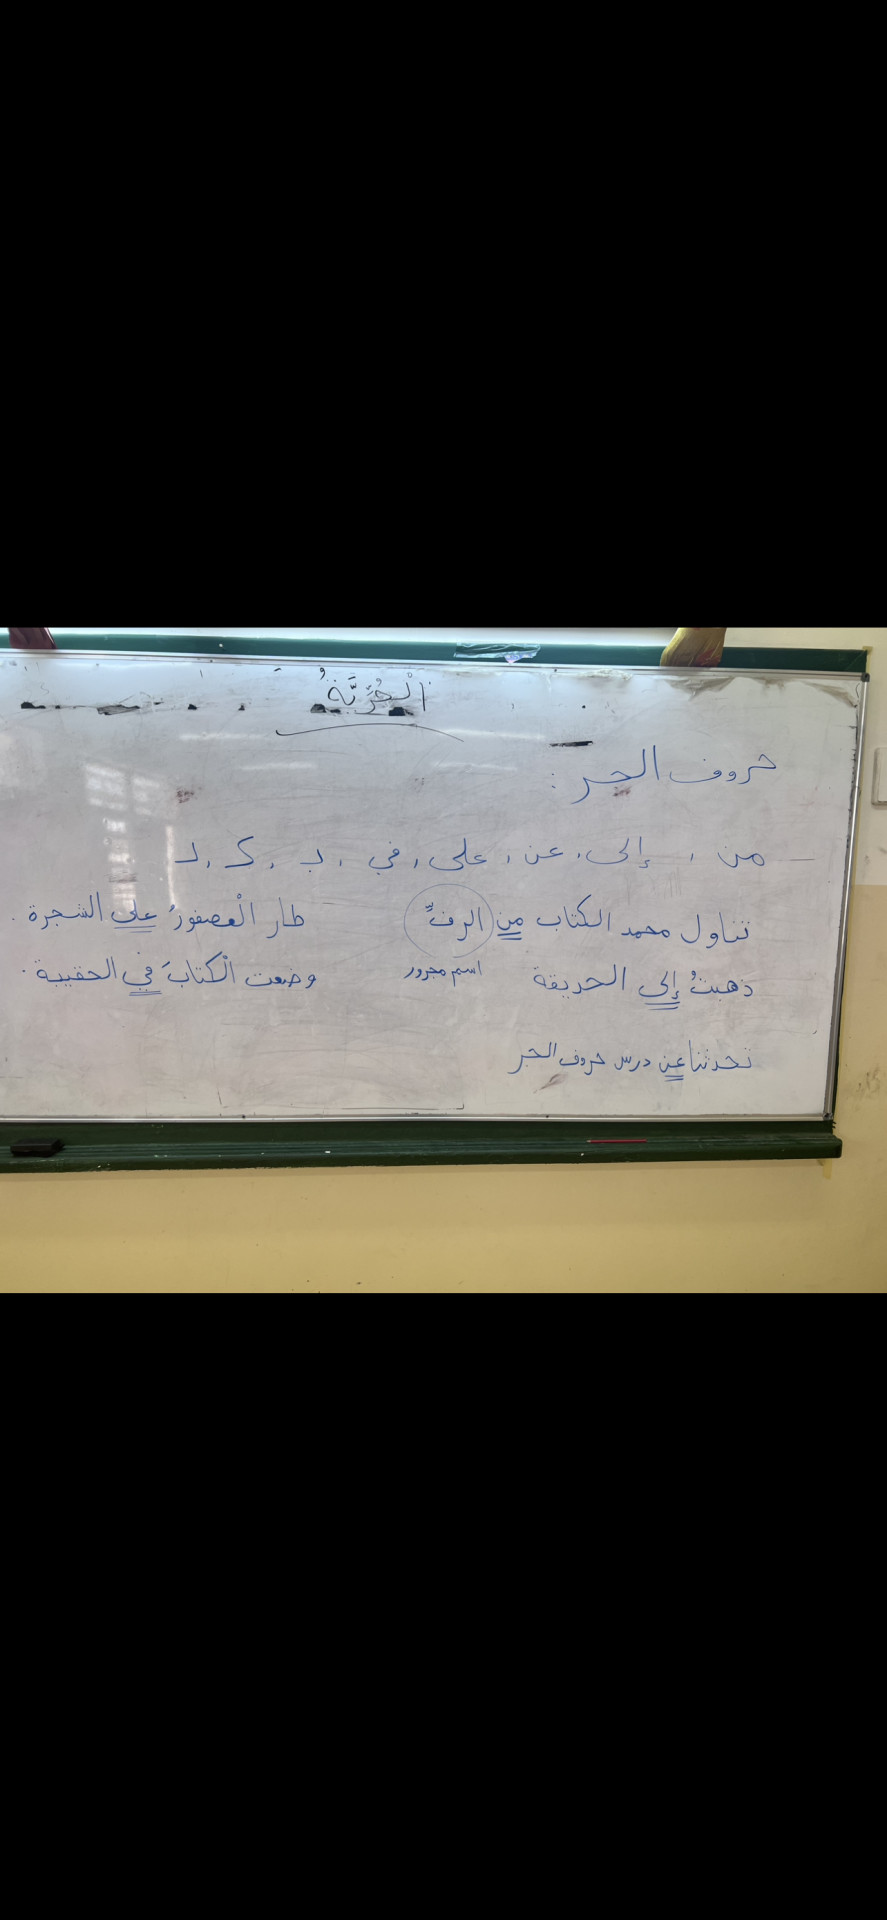 الْحُرِّيَّةُ
حروف الجر :
من ، إلى ، عن ، على ، في ، بـ ، كـ ، لـ
تناول محمد الكتاب من الرفِّ
اسم مجرور
طار الْعصفورُ على الشجرة .
ذهبتُ إلى الحديقة
وضعت الْكتابَ في الحقيبة .
تحدثنا عن درس حروف الجر